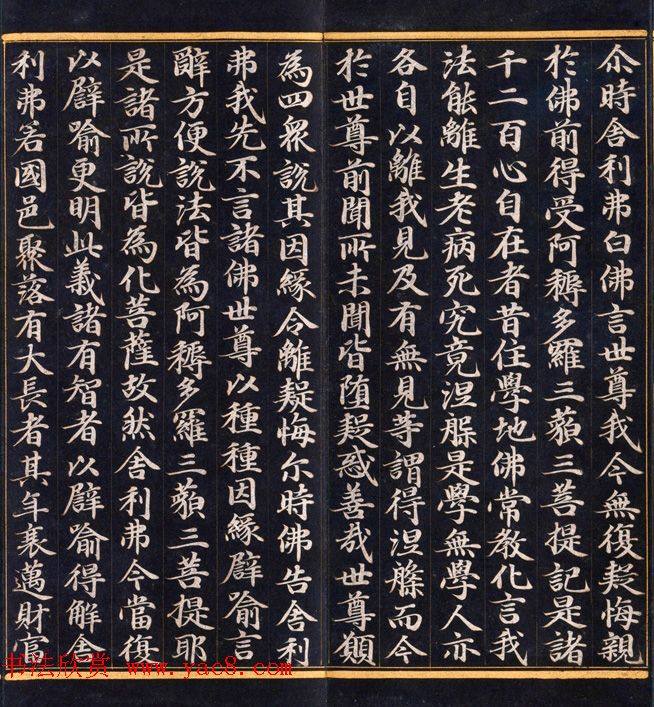 尒時舍利弗白佛言世尊我今無復疑悔親
於佛前得受阿耨多羅三藐三菩提記是諸
千二百心自在者昔住學地佛常教化言我
法能離生老病死究竟涅槃是學無學人亦
各自以離我見及有無見等謂得涅槃而今
於世尊前聞所未聞皆墮疑惑善哉世尊願
為四眾說其因緣令離疑悔尒時佛告舍利
弗我先不言諸佛世尊以種種因緣譬喻言
辭方便說法皆為阿耨多羅三藐三菩提耶
是諸所說皆為化菩薩故然舍利弗今當復
以譬喻更明此義諸有智者以譬喻得解舍
利弗若國邑聚落有大長者其年衰邁財富
书法欣赏 www.yac8.com